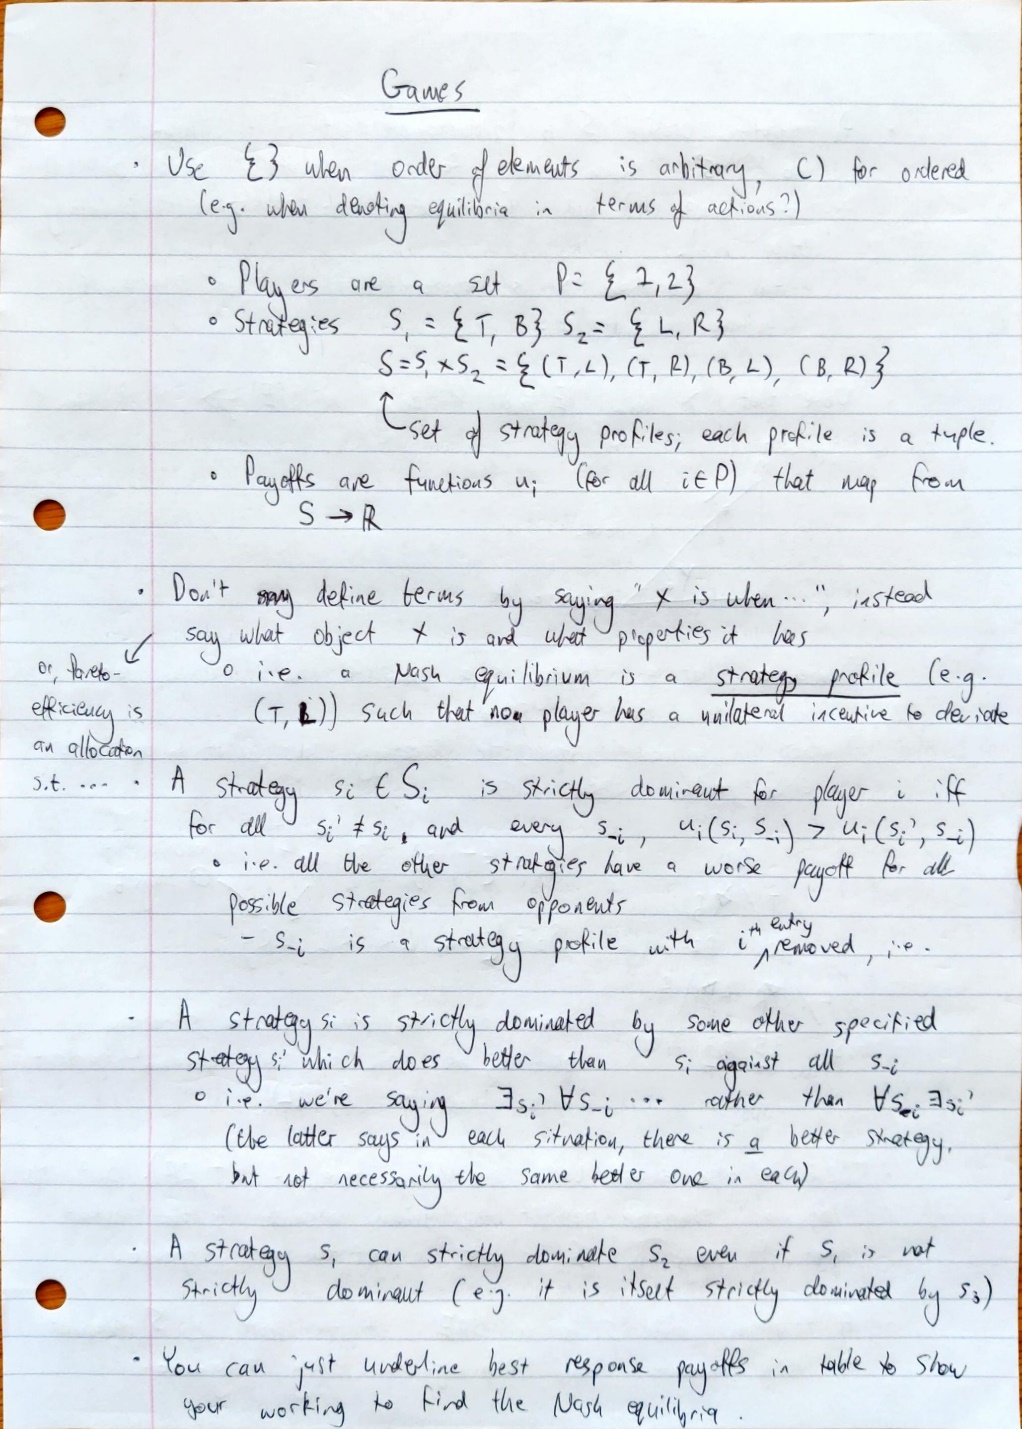 Games
· Use {} when order of elements is arbitrary, () for ordered
(e.g. when denoting equilibria in terms of actions?)
∘ Players are a set P = {1,2}
∘ Strategies S₁ = {T, B} S₂ = {L, R}
S = S₁ × S₂ = {(T,L), (T, R), (B, L), (B, R)}
set of strategy profiles; each profile is a tuple.
∘ Payoffs are functions uᵢ (for all i∈P) that map from
S → ℝ
· Don't define terms by saying "X is when ...", instead
say what object X is and what properties it has
∘ i.e. a Nash equilibrium is a strategy profile (e.g.
(T, L)) such that no player has a unilateral incentive to deviate
or, Pareto-
efficiency is
an allocation
s.t. ....
· A strategy sᵢ ∈ Sᵢ is strictly dominant for player i iff
for all sᵢ' ≠ sᵢ, and every s₋ᵢ, uᵢ(sᵢ, s₋ᵢ) > uᵢ(sᵢ', s₋ᵢ)
∘ i.e. all the other strategies have a worse payoff for all
possible strategies from opponents
- s₋ᵢ is a strategy profile with iᵗʰ entry removed, i.e.
· A strategy si is strictly dominated by some other specified
strategy sᵢ' which does better than sᵢ against all s₋ᵢ
∘ i.e. we're saying ∃sᵢ' ∀s₋ᵢ ... rather than ∀s₋ᵢ ∃sᵢ'
(the latter says in each situation, there is a better strategy,
but not necessarily the same better one in each)
· A strategy s₁ can strictly dominate s₂ even if s₁ is not
strictly dominant (e.g. it is itself strictly dominated by s₃)
· You can just underline best response payoffs in table to show
your working to find the Nash equilibria.